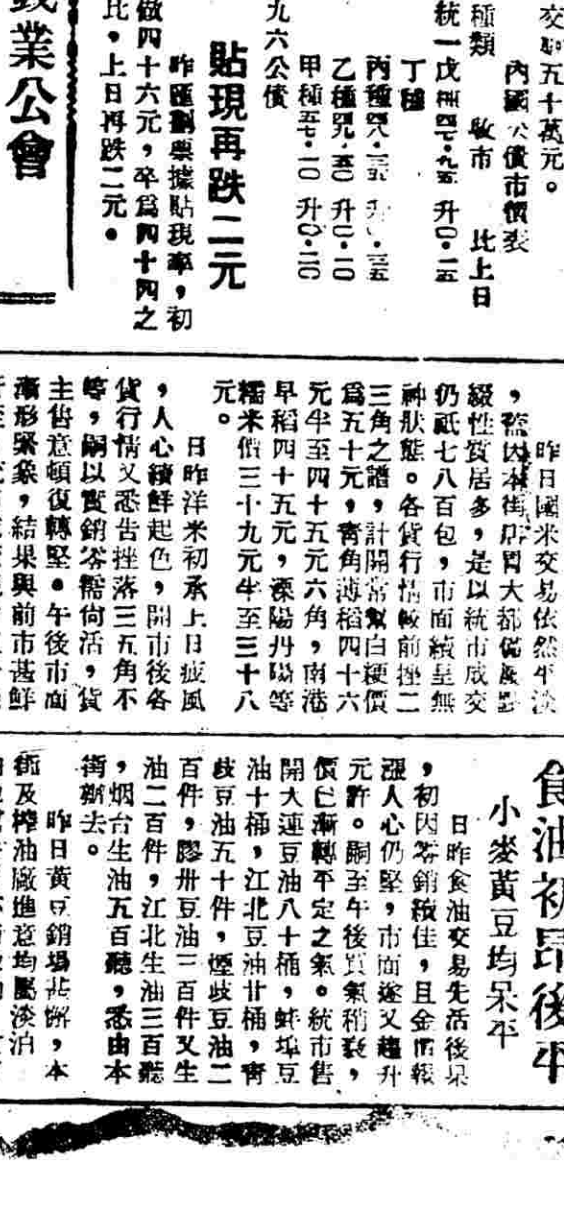 交易五十萬元。
內國公債市價表
種類 收市 比上日
統一戊種四七·九五 升〇·一五
丁種
丙種
乙種 升〇·一〇
甲種五七·一〇 升〇·二〇
九六公債
貼現再跌二元
昨匯劃票據貼現率，初
做四十六元，卒爲四十四之
比，上日再跌二元。
業公會
昨日國米交易依然平淡
，蓋因本街店胃大都備
綴性質居多，是以統市成交
仍祇七八百包，市面續呈無
神狀態。各貨行情較前挫二
三角之譜，計開常幫白粳價
爲五十元，青角薄稻四十六
元半至四十五元六角，南港
早稻四十五元，溧陽丹陽等
糯米價三十九元半至三十八
元。
日昨洋米初承上日疲風
，人心續鮮起色，開市後各
貨行情又悉告挫落三五角不
等，嗣以實銷零需尙活，貨
主售意頓復轉堅。午後市面
漸形緊象，結果與前市甚鮮
食油初昂後平
小麥黃豆均呆平
日昨食油交易先活後呆
，初因零銷續佳，且金價報
漲人心仍堅，市面遂又趨升
元許。嗣至午後買氣稍衰，
價已漸轉平定之氣。統市售
開大連豆油八十桶，蚌埠豆
油十桶，江北豆油廿桶，靑
歧豆油五十件，煙歧豆油二
百件，膠州豆油三百件又生
油二百件，江北生油三百聽
，烟台生油五百聽，悉由本
街辦去。
昨日黃豆銷場甚懈，本
街及榨油廠進意均屬淡泊